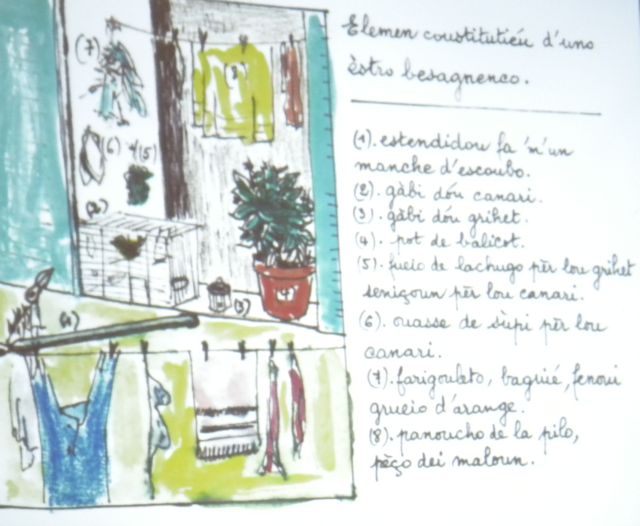 Elemen coustitutiéu d'uno
èstro besagnenco.
(1). estendidou fa 'm'un
manche d'escoubo.
(2). gàbi dóu canari.
(3). gàbi dóu grihet.
(4). pot de balicot.
(5). fueio de lachugo pèr lou grihet
seniçoun pèr lou canari.
(6). ouasse de sùpi pèr lou
canari.
(7). farigouleto, baguié, fenoui
grueio d'arange.
(8). panoucho de la pilo,
pèço dei maloun.
(7)
(8)
(6)
(5)
(2)
(3)
(4)
(1)